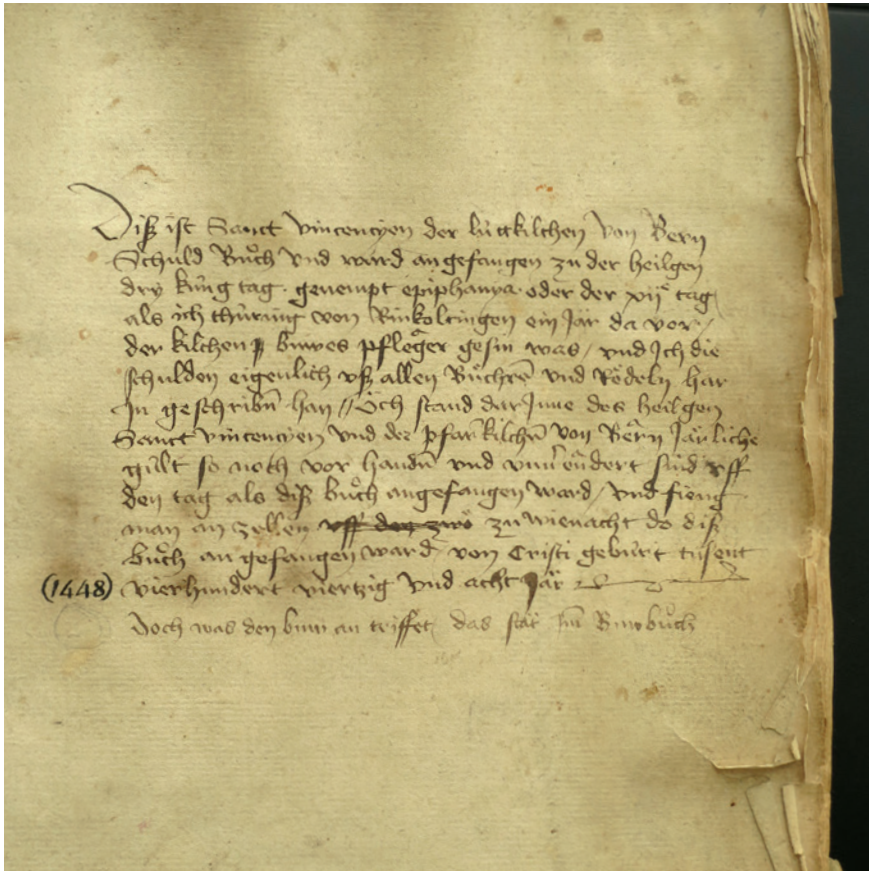 Disz ist Sanct vincencyen der lütkilchen von Bern
Schuld Bůch vnd ward angefangen zu der heilgen
dry küng tag. genempt epiphanya. oder der xij tag
als ich thüring von Rinkoltingen ein Jar da vor /
der kilchen buwes pfleger gesin was / vnd Ich die
schulden eigenlich vsz allen Bůchrē vnd Rödeln har
In geschribn̄ han // Och stand dar Inne des heilgen
Sanct vincencyen vnd der pfarkilchn̄ von Bern Järliche
gült so noch vor handn̄ vnd vnuerendert sind vff
den tag als disz bůch angefangen ward / vnd fieng
man an zellen vff den zwö zu wienacht do disz
bůch an gefangen ward von Cristi gebürt tusent
(1448) vierhundert viertzig vnd acht Jar
Doch was den buw an triffet / das stat Im Buwbůch